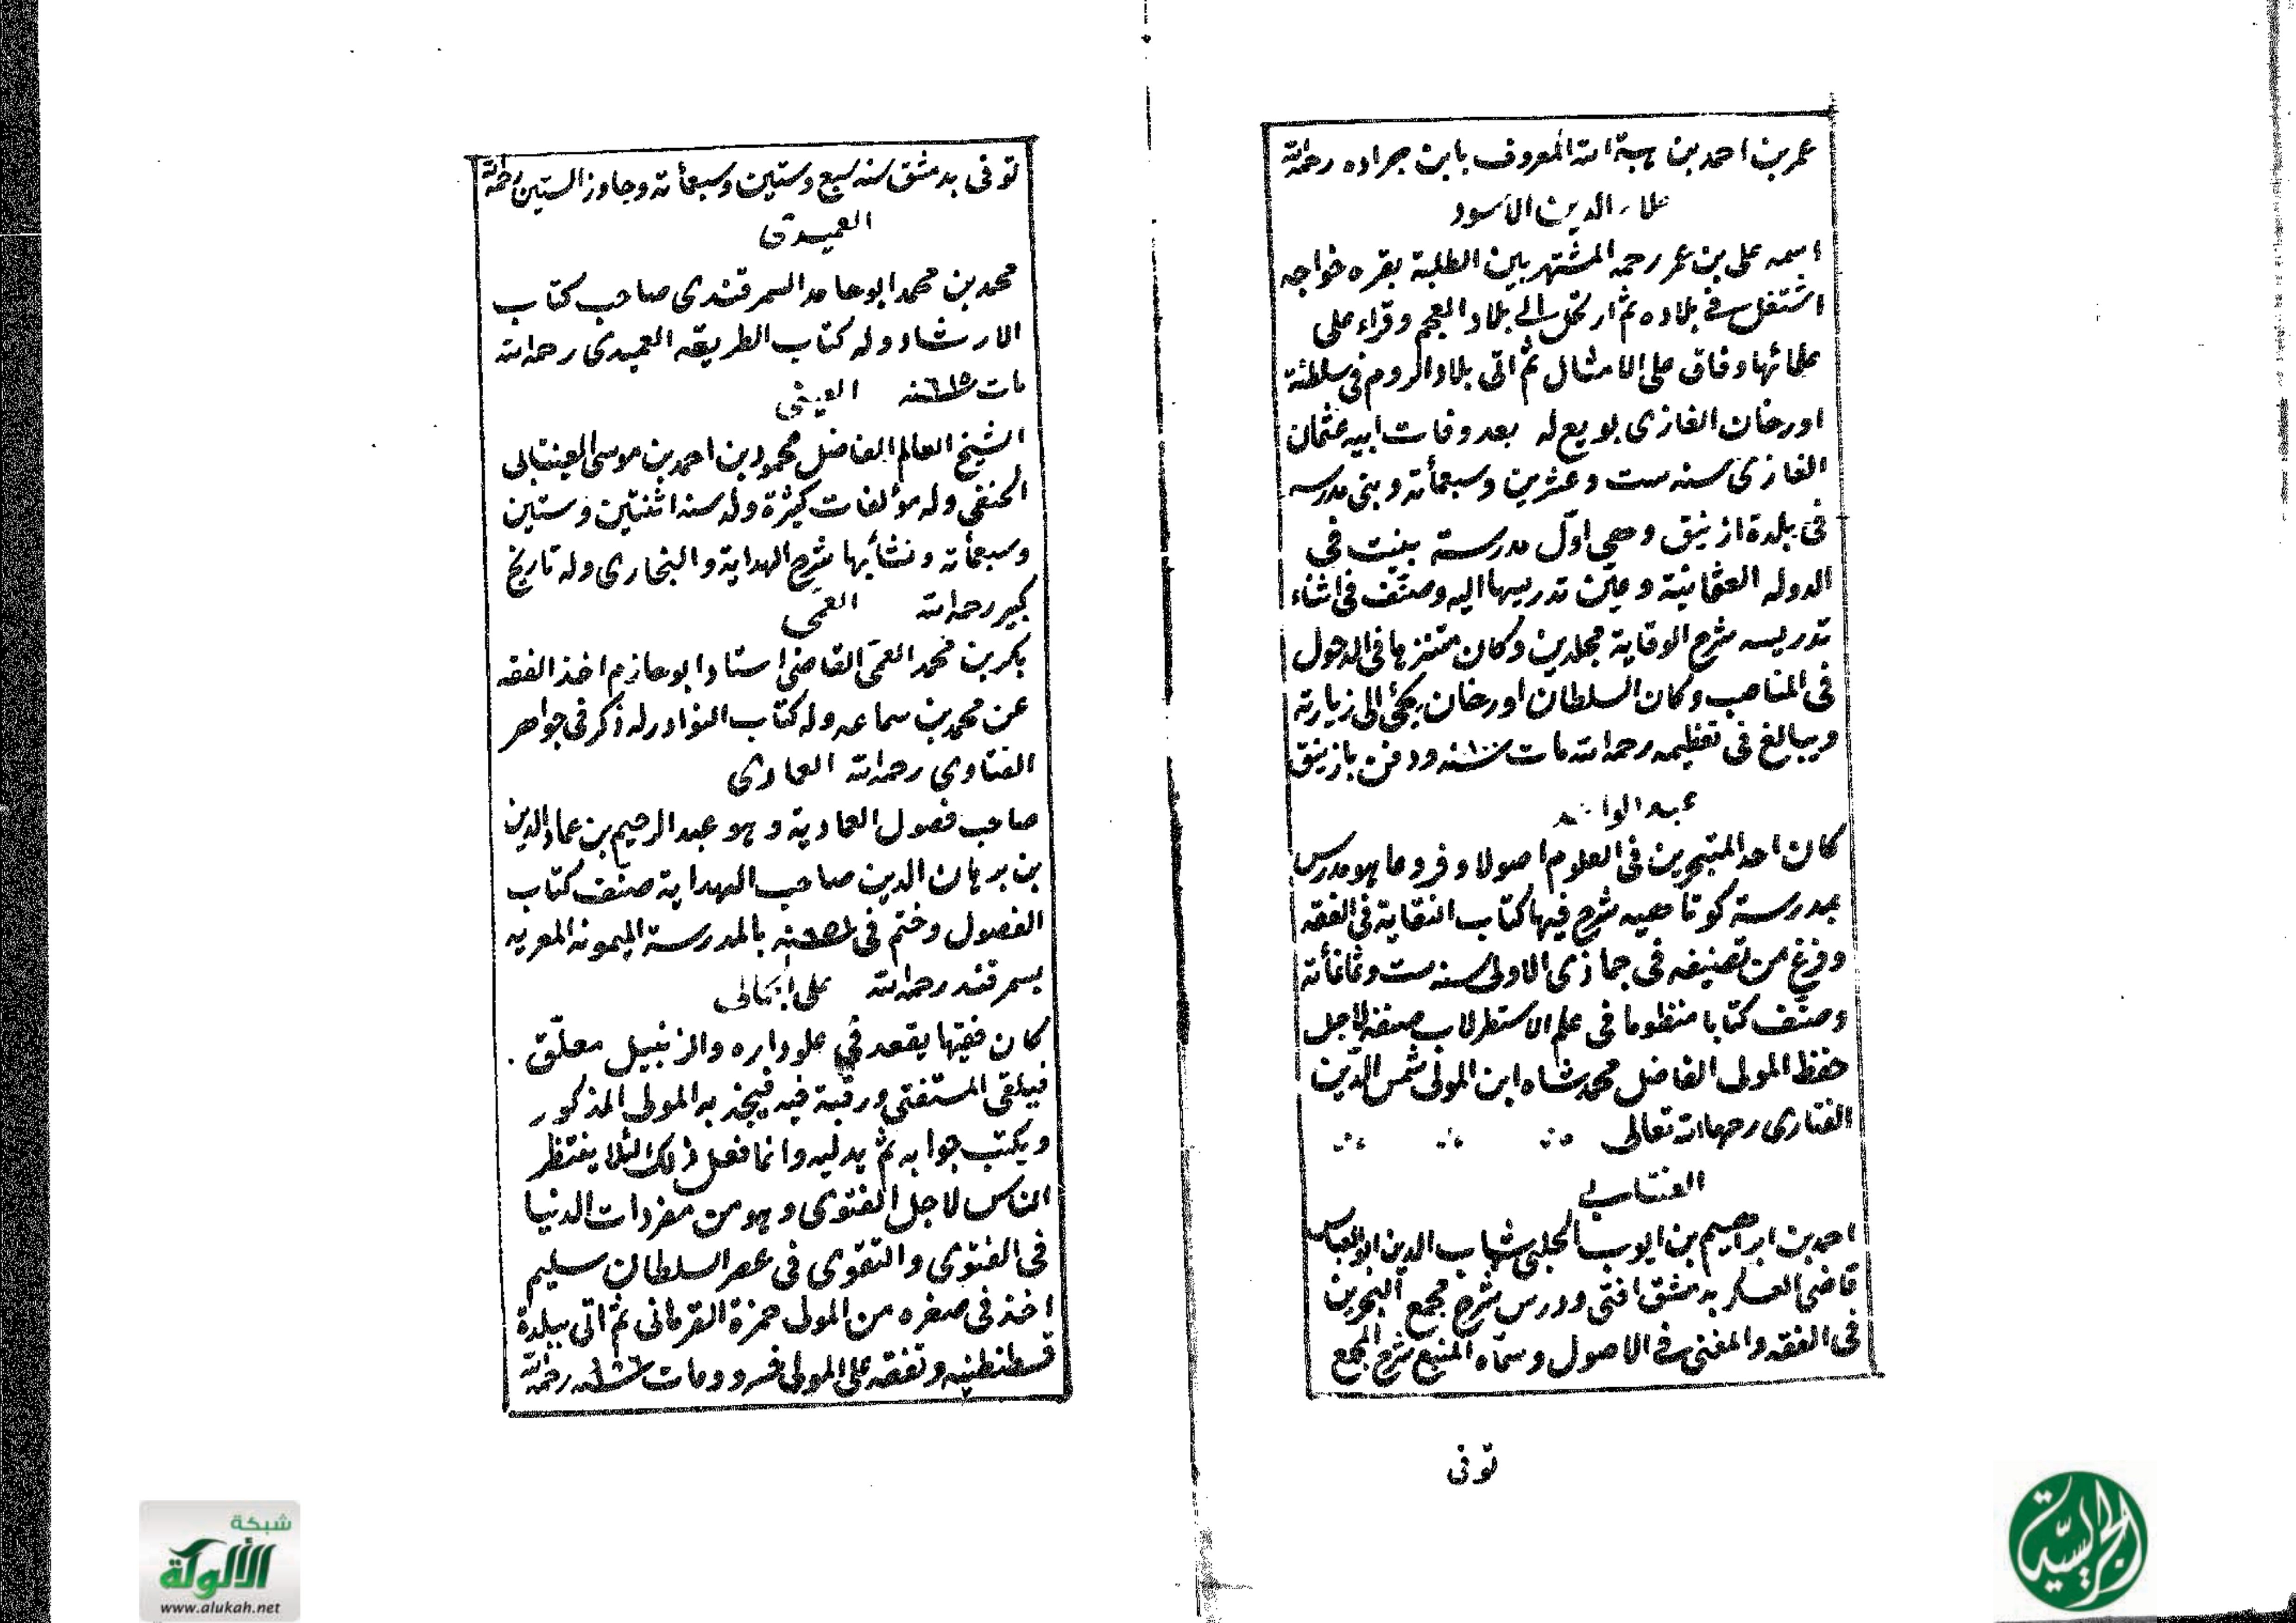 عمر بن احمد بن هبة الله المعروف بابن جراده رحمه الله
علاء الدين الاسود
اسمه على بن عمر رحمه المشتهر بين الطلبة بقره خواجه
اشتغل فى بلاده ثم ارتحل الى بلاد العجم وقراء على
علمائها وفاق على الامثال ثم اتى بلاد الروم فى سلطنة
اورخان الغازى بويع له بعد وفات ابيه عثمان
الغازى سنه ست وعشرين وسبعمأته وبنى مدرسه
فى بلدة ازنيق وهى اول مدرسة بنيت فى
الدوله العثمانية وعين تدريسها اليه وصنف فى اثناء
تدريسه شرح الوقاية مجلدين وكان متنزها فى الدخول
فى المناصب وكان السلطان اورخان يجئ الى زيارته
ويبالغ فى تعظيمه رحمه الله مات سنه ٨٠٠ ودفن بازنيق
عبد الواحد
كان احد المتبحرين فى العلوم اصولا وفروعا هو مدرس
بمدرسة كوتاهيه شرح فيها كتاب النقاية فى الفقه
وفرغ من تصنيفه فى جمازى الاولى سنه ست وثمانمأته
وصنف كتابا منظوما فى علم الاسطرلاب صنفه لاجل
حفظ المولى الفاضل محمد شاه ابن المولى شمس الدين
الفنارى رحمهما الله تعالى
العنتابى
احمد بن ابراهيم بن ايوب الحلبى شهاب الدين ابو العباس
قاضى العسكر بدمشق افتى ودرس شرح مجمع البحرين
فى الفقه والمغنى فى الاصول وسماه المنبع شرح المجمع
توفى
توفى بدمشق سنه سبع وستين وسبعمأته وجاوز الستين رحمه الله
العميدى
محمد بن محمد ابو حامد السمرقندى صاحب كتاب
الارشاد وله كتاب الطريقه العميدى رحمه الله
مات سنه ٦١٥ العينى
الشيخ العالم الفاضل محمود بن احمد بن موسى العينتابى
الحنفى وله مؤلفات كثيرة ولد سنه اثنتين وستين
وسبعمأته ونشأ بها شرح الهداية والبخارى وله تاريخ
كبير رحمه الله العمى
بكر بن محمد العمى القاضى استاد ابو حازم اخذ الفقه
عن محمد بن سماعه وله كتاب النوادر له ذكر فى جواهر
الفتاوى رحمه الله العمادى
صاحب فصول العمادية وهو عبد الرحيم بن عماد الدين
بن برهان الدين صاحب الهداية صنف كتاب
الفصول وختم فى سنه ٦٥١ بالمدرسة الميمونه المعريه
بسمرقند رحمه الله على الجمالى
كان فقيها يقعد فى علو داره والزنبيل معلق .
فيلقى المستفتى ورقة فيه فيجذبه المولى المذكور
ويكتب جوابه ثم يدليه وانما فعل ذلك لئلا ينتظر
الناس لاجل الفتوى وهو من مفردات الدنيا
فى الفتوى والتقوى فى عصر السلطان سليم
اخذ فى صغره من المولى حمزة القرمانى ثم اتى ببلدة
قسطنطنيه وتفقه على المولى خسرو ومات رحمه الله
شبكة
الألوكة
www.alukah.net